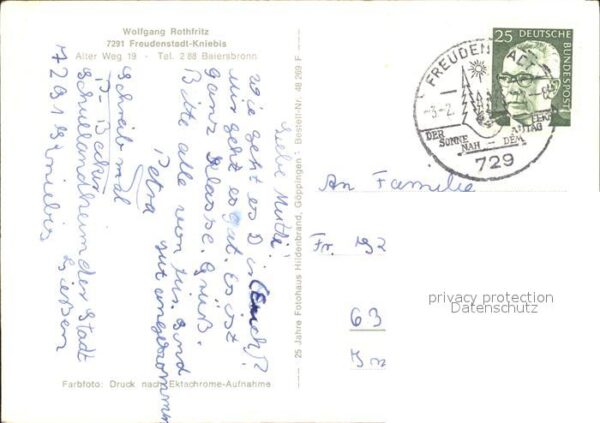 Wolfgang Rothfritz
7291 Freudenstadt-Kniebis
Alter Weg 19 - Tel. 2 88 Baiersbronn
Liebe Mutti!
Wie geht es Dir (Euch)?
Mir geht es gut. Es ist
ganz Klasse. Grüß
Bitte alle von mir. Sind
gut angekommen
Petra
Schreib mal
P. Becker
Schullandheim der Stadt
Gießen
7291 Kniebis
Farbfoto: Druck nach Ektachrome-Aufnahme
25 Jahre Fotohaus Hildenbrand, Göppingen · Bestell-Nr. 48 269 F
25 DEUTSCHE
BUNDESPOST
FREUDENSTADT
-3.-2.
DER
SONNE
NAH - DEM
ALLTAG
FERN
729
An Familie
Fr.
63
privacy protection
Datenschutz